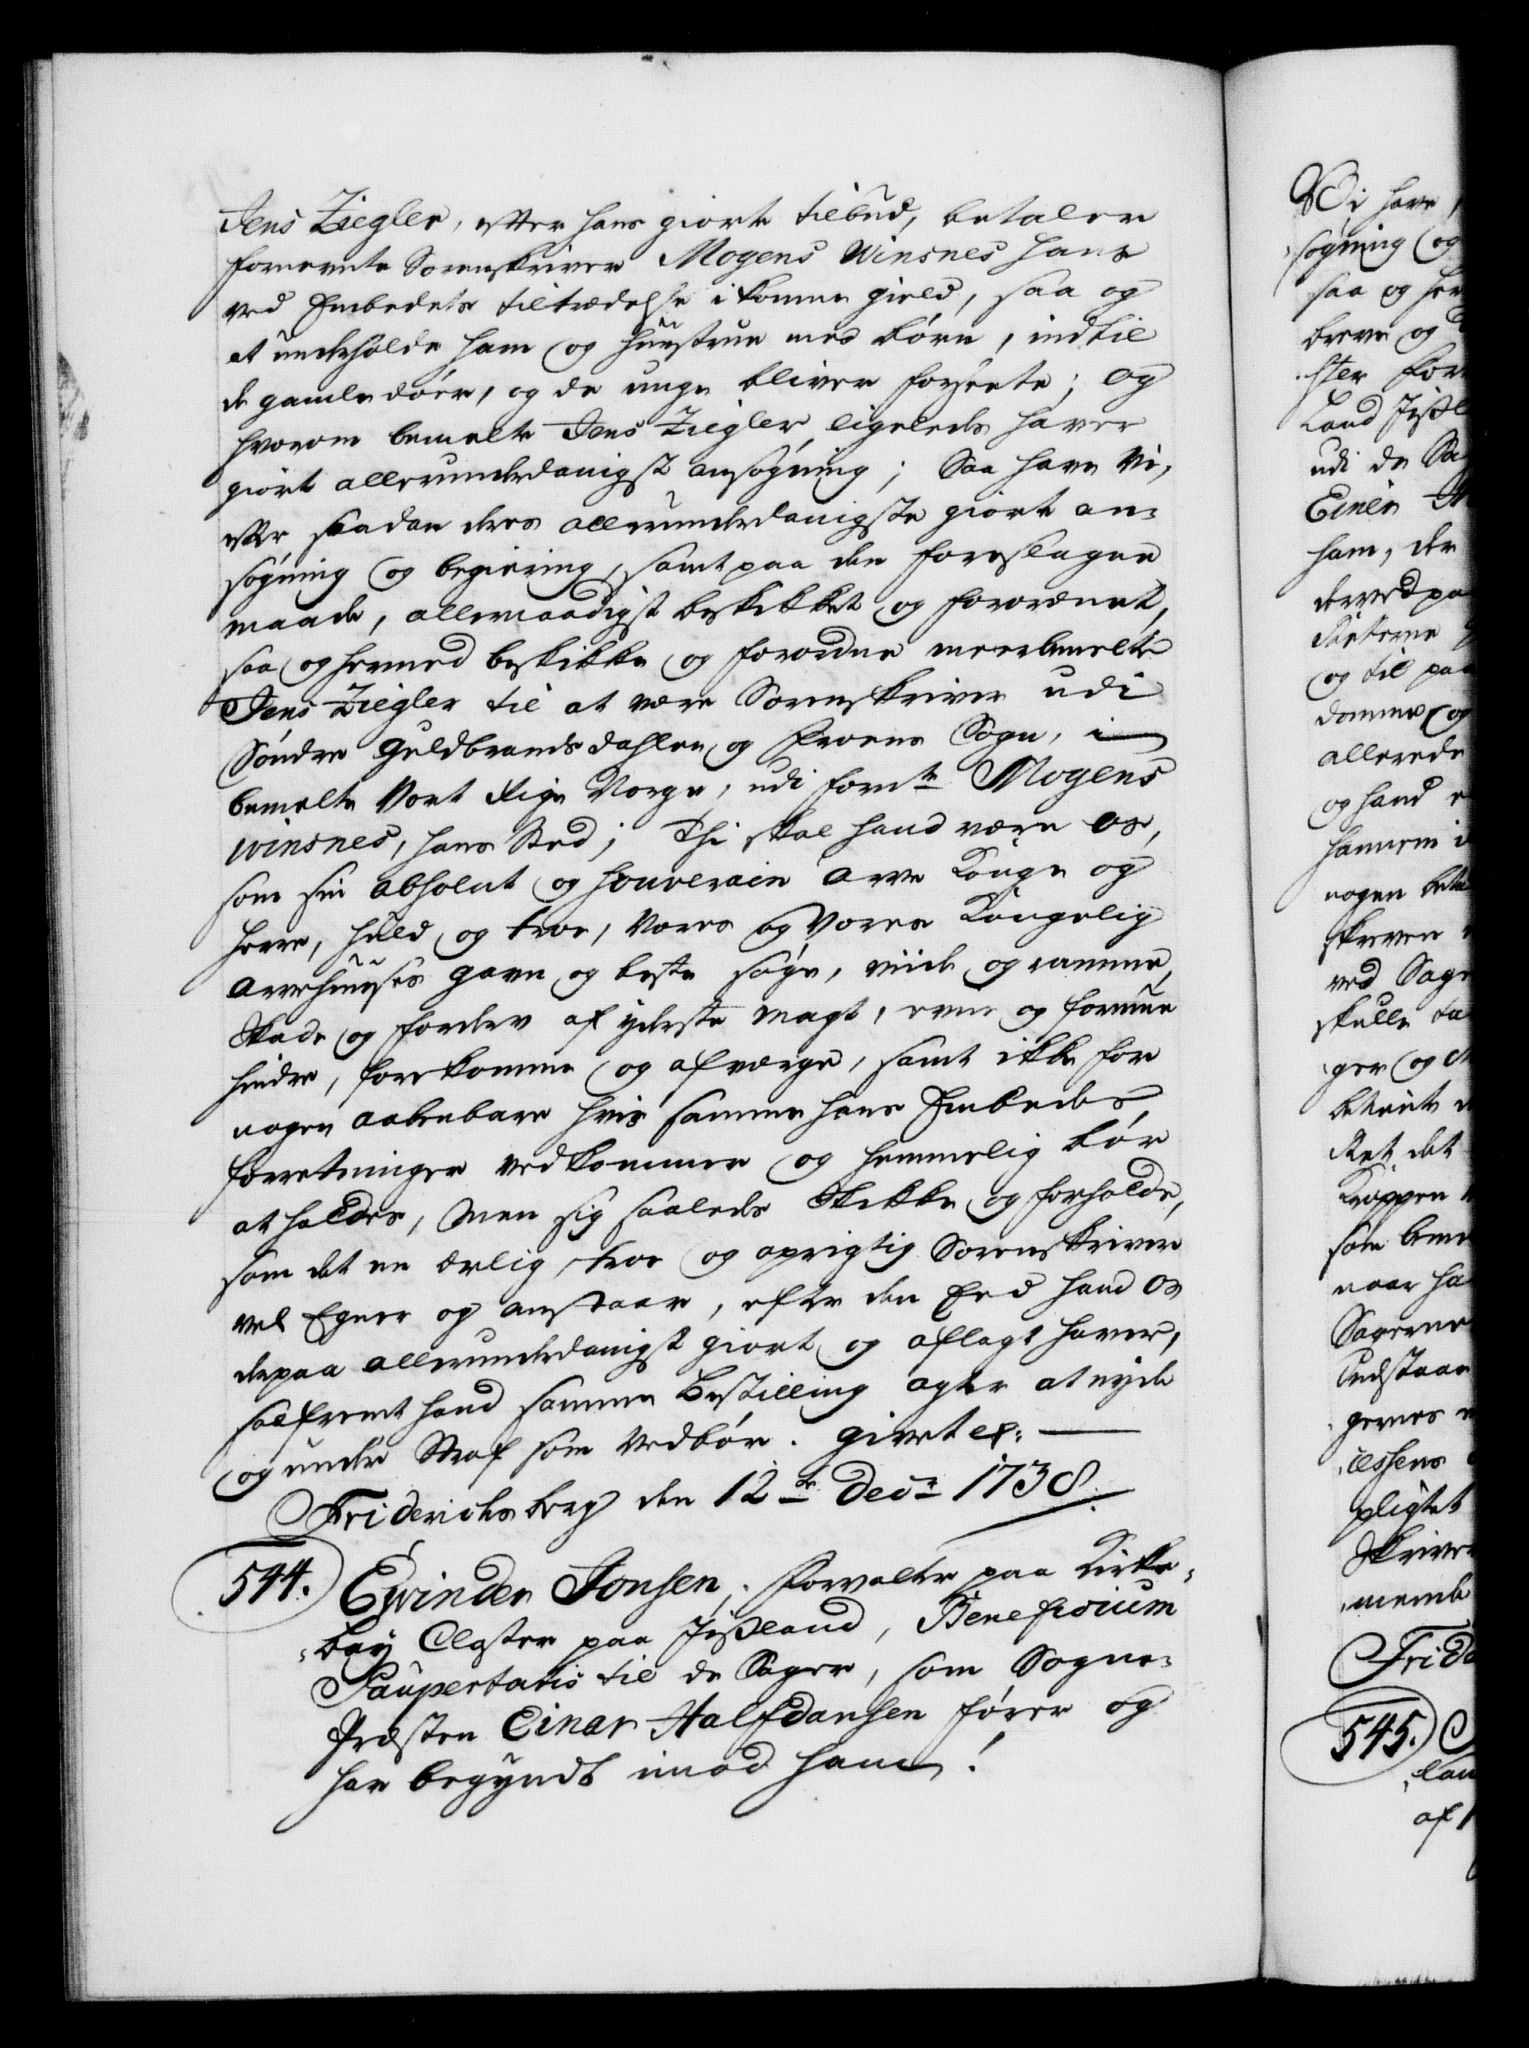 Jens Ziegler, efter hans giorte tilbud, betaler
fornevnte Sorenskriver Mogens Winsnes hans
ved Embedets tiltrædelse i komne gield, saa og
at underholde ham og huustrue med börn, indtil
de gamle döer, og de unge bliver forsörte; og
hvorom bemelte Jens Ziegler ligeleds haver
giort allerunderdanigst ansögning; Saa have Vi,
efter saadan deres allerunderdanigste giorte an-
sögning og begiering, samt paa den foreslagne
maade, allernaadigst beskikket og forordnet,
saa og hermed beskikke og forordne meerbemelte
Jens Ziegler til at være Sorenskriver udi
Söndre Guldbrandsdahlen og Froens Sogn, i
bemelte Vort Rige Norge, udi fornte Mogens
Winsnes, hans Sted; Thi skal hand være os,
som sin absolut og souverain Arve Konge og
Herre, huld og troe, Vores og Vores Kongelig
Arvehuuses gavn og beste söge, viide og ramme,
Skade og forderv af yderste magt, evne og formue
hindre, forekomme og afværge, samt ikke for
nogen aabenbare hvis samme hans Embedes
forretninger vedkommer og hemmelig bör
at holdes, Men sig saaleds skikke og forholde,
som det en ærlig, troe og oprigtig Sorenskriver
vel Egner og anstaar, efter den Eed hand Os
derpaa allerunderdanigst giort og aflagt haver,
saafremt hand samme Bestilling agter at nyde
og under Straf som Vedbör. Givet ex:
Friderichsberg den 12te Decr 1738.
544. Ewinder Jonsen, Forvalter paa Kirke-
bay Closter paa Jisland, Beneficium
Paupertatis til de Sager, som Sogne-
Præsten Einar Halfdansen förer og
har begyndt imod ham!
Vi have
sögning og
saa og her
breve og
ster for
Land Jisl
udi de Sa
Einer
ham, der
derved pa
Rætterne
og til paa
domme og
allerede
og hand
hannem i
nogen beta
skreven
ved Sage
skulle ta
ger og
betient
Ret, det
Kroppen
som bem
naar ha
Sagerne
Tudstaar
gernes
cessens
pligtet
Skriver
meente
Frid
545.
lan
af